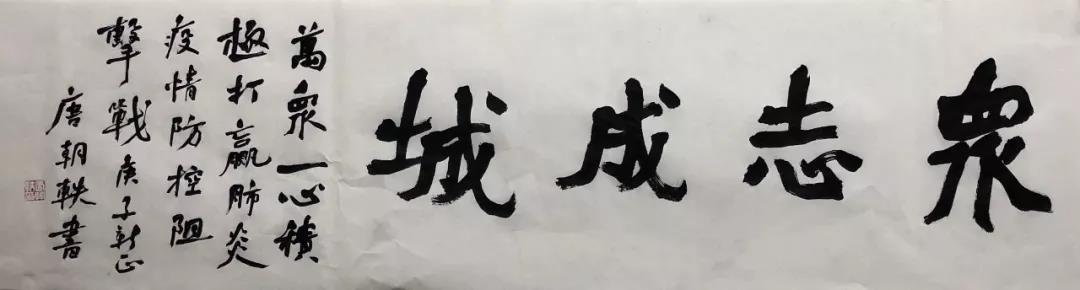 眾志成城
萬眾一心積
極打贏肺炎
疫情防控阻
擊戰庚子新正
唐朝軼書